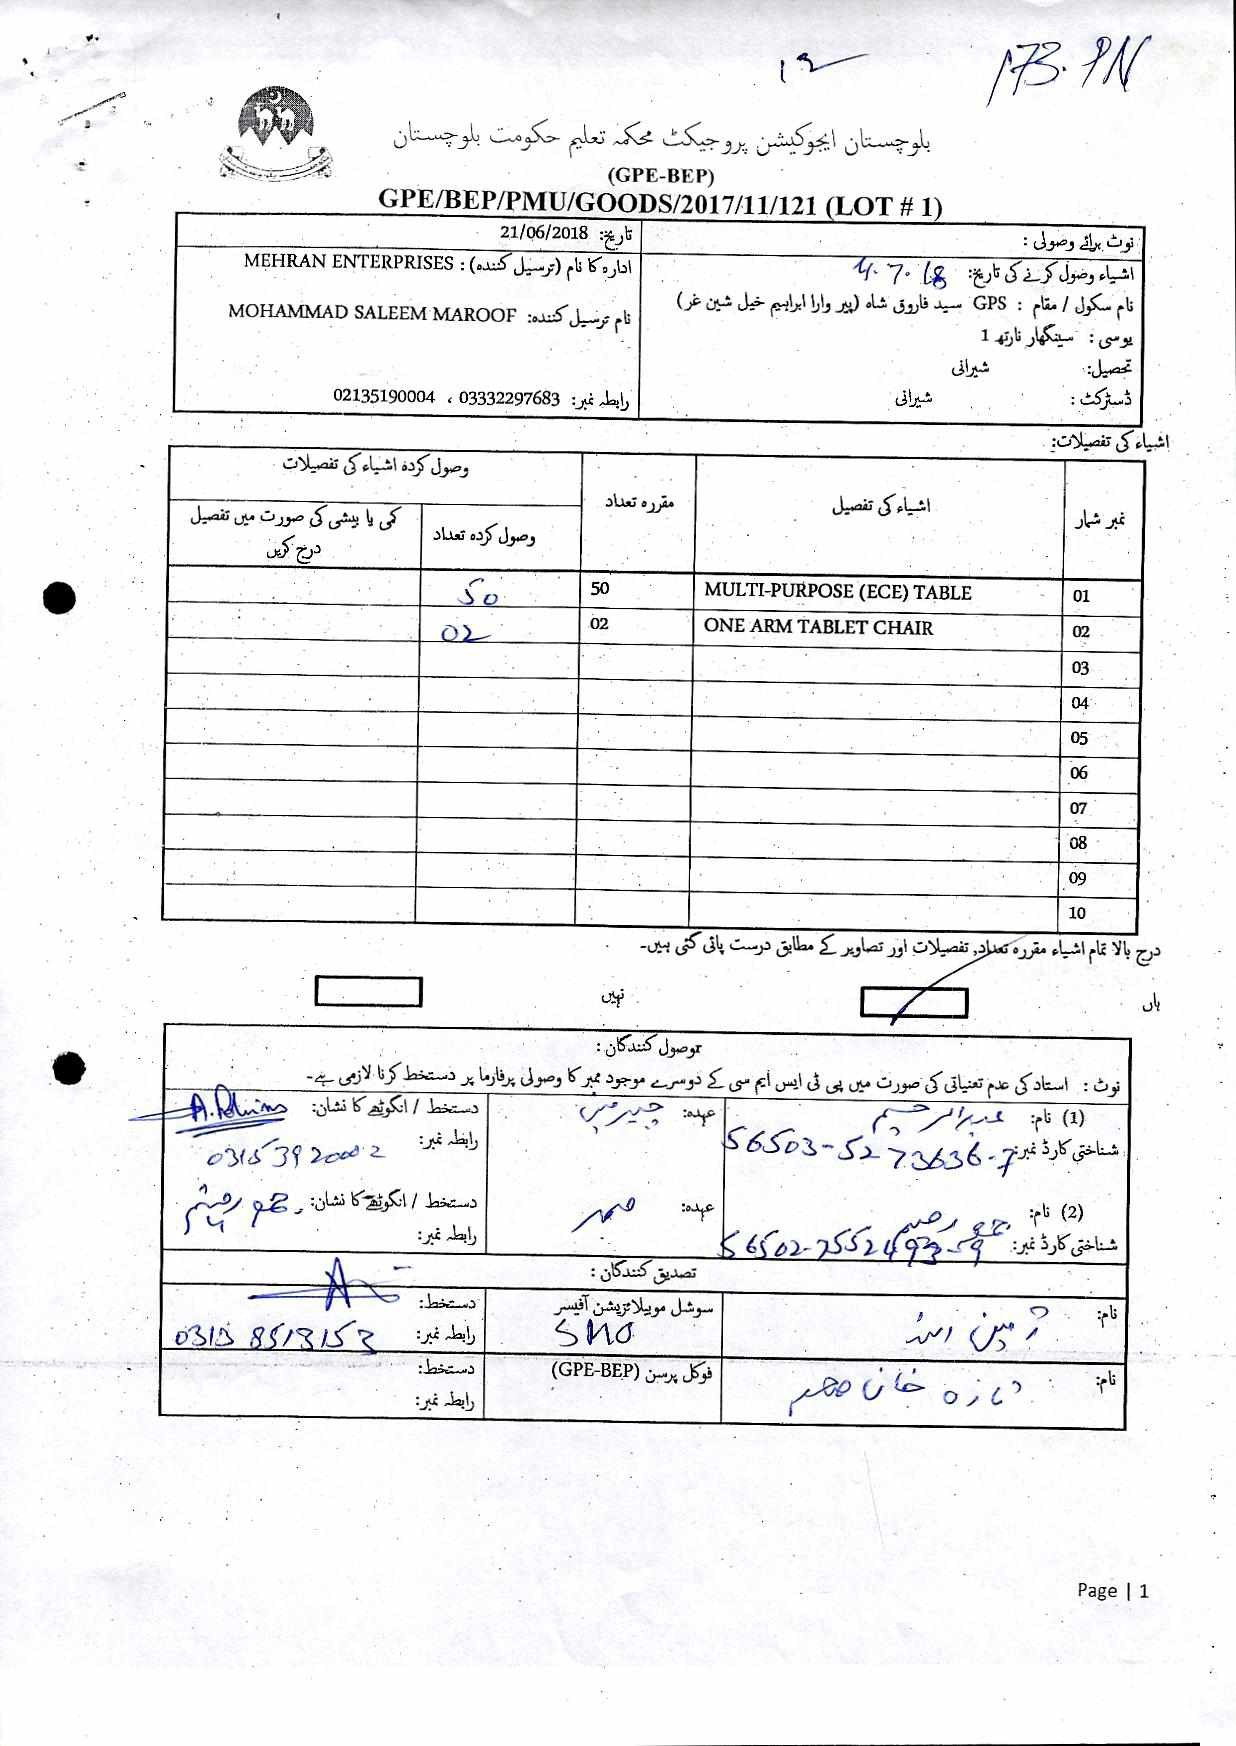 173.PN
بلوچستان ایجوکیشن پروجیکٹ محکمہ تعلیم حکومت بلوچستان
(GPE-BEP)
GPE/BEP/PMU/GOODS/2017/11/121 (LOT # 1)
نوٹ برائے وصولی :
اشیاء وصول کرنے کی تاریخ: 4.7.18
نام سکول / مقام : GPS سید فاروق شاہ (پیر وارا ابراہیم خیل شین غر)
یوسی : سینگھار نارتھ 1
تحصیل: شیرانی
ڈسٹرکٹ : شیرانی
تاریخ: 21/06/2018
ادارہ کا نام (ترسیل کنندہ) : MEHRAN ENTERPRISES
نام ترسیل کنندہ: MOHAMMAD SALEEM MAROOF
رابطہ نمبر: 03332297683 ، 02135190004
اشیاء کی تفصیلات:
نمبر شمار اشیاء کی تفصیل مقررہ تعداد وصول کردہ اشیاء کی تفصیلات
وصول کردہ تعداد کمی یا بیشی کی صورت میں تفصیل درج کریں
01 MULTI-PURPOSE (ECE) TABLE 50 50
02 ONE ARM TABLET CHAIR 02 02
03
04
05
06
07
08
09
10
درج بالا تمام اشیاء مقررہ تعداد, تفصیلات اور تصاویر کے مطابق درست پائی گئی ہیں۔
ہاں نہیں
موصول کنندگان :
نوٹ : استاد کی عدم تعیناتی کی صورت میں پی ٹی ایس ایم سی کے دوسرے موجود ممبر کا وصولی پرفارما پر دستخط کرنا لازمی ہے۔
(1) نام: عبدالرحیم عہدہ: چیئرمین دستخط / انگوٹھے کا نشان: A.Rahim
شناختی کارڈ نمبر: 56503-5273636-7 رابطہ نمبر: 03153920002
(2) نام: عہدہ: ممبر دستخط / انگوٹھے کا نشان:
شناختی کارڈ نمبر: رابطہ نمبر:
تصدیق کنندگان :
نام: سوشل موبیلائزیشن آفیسر دستخط:
SMO رابطہ نمبر: 0313 8513153
نام: فوکل پرسن (GPE-BEP) دستخط:
رابطہ نمبر:
Page | 1